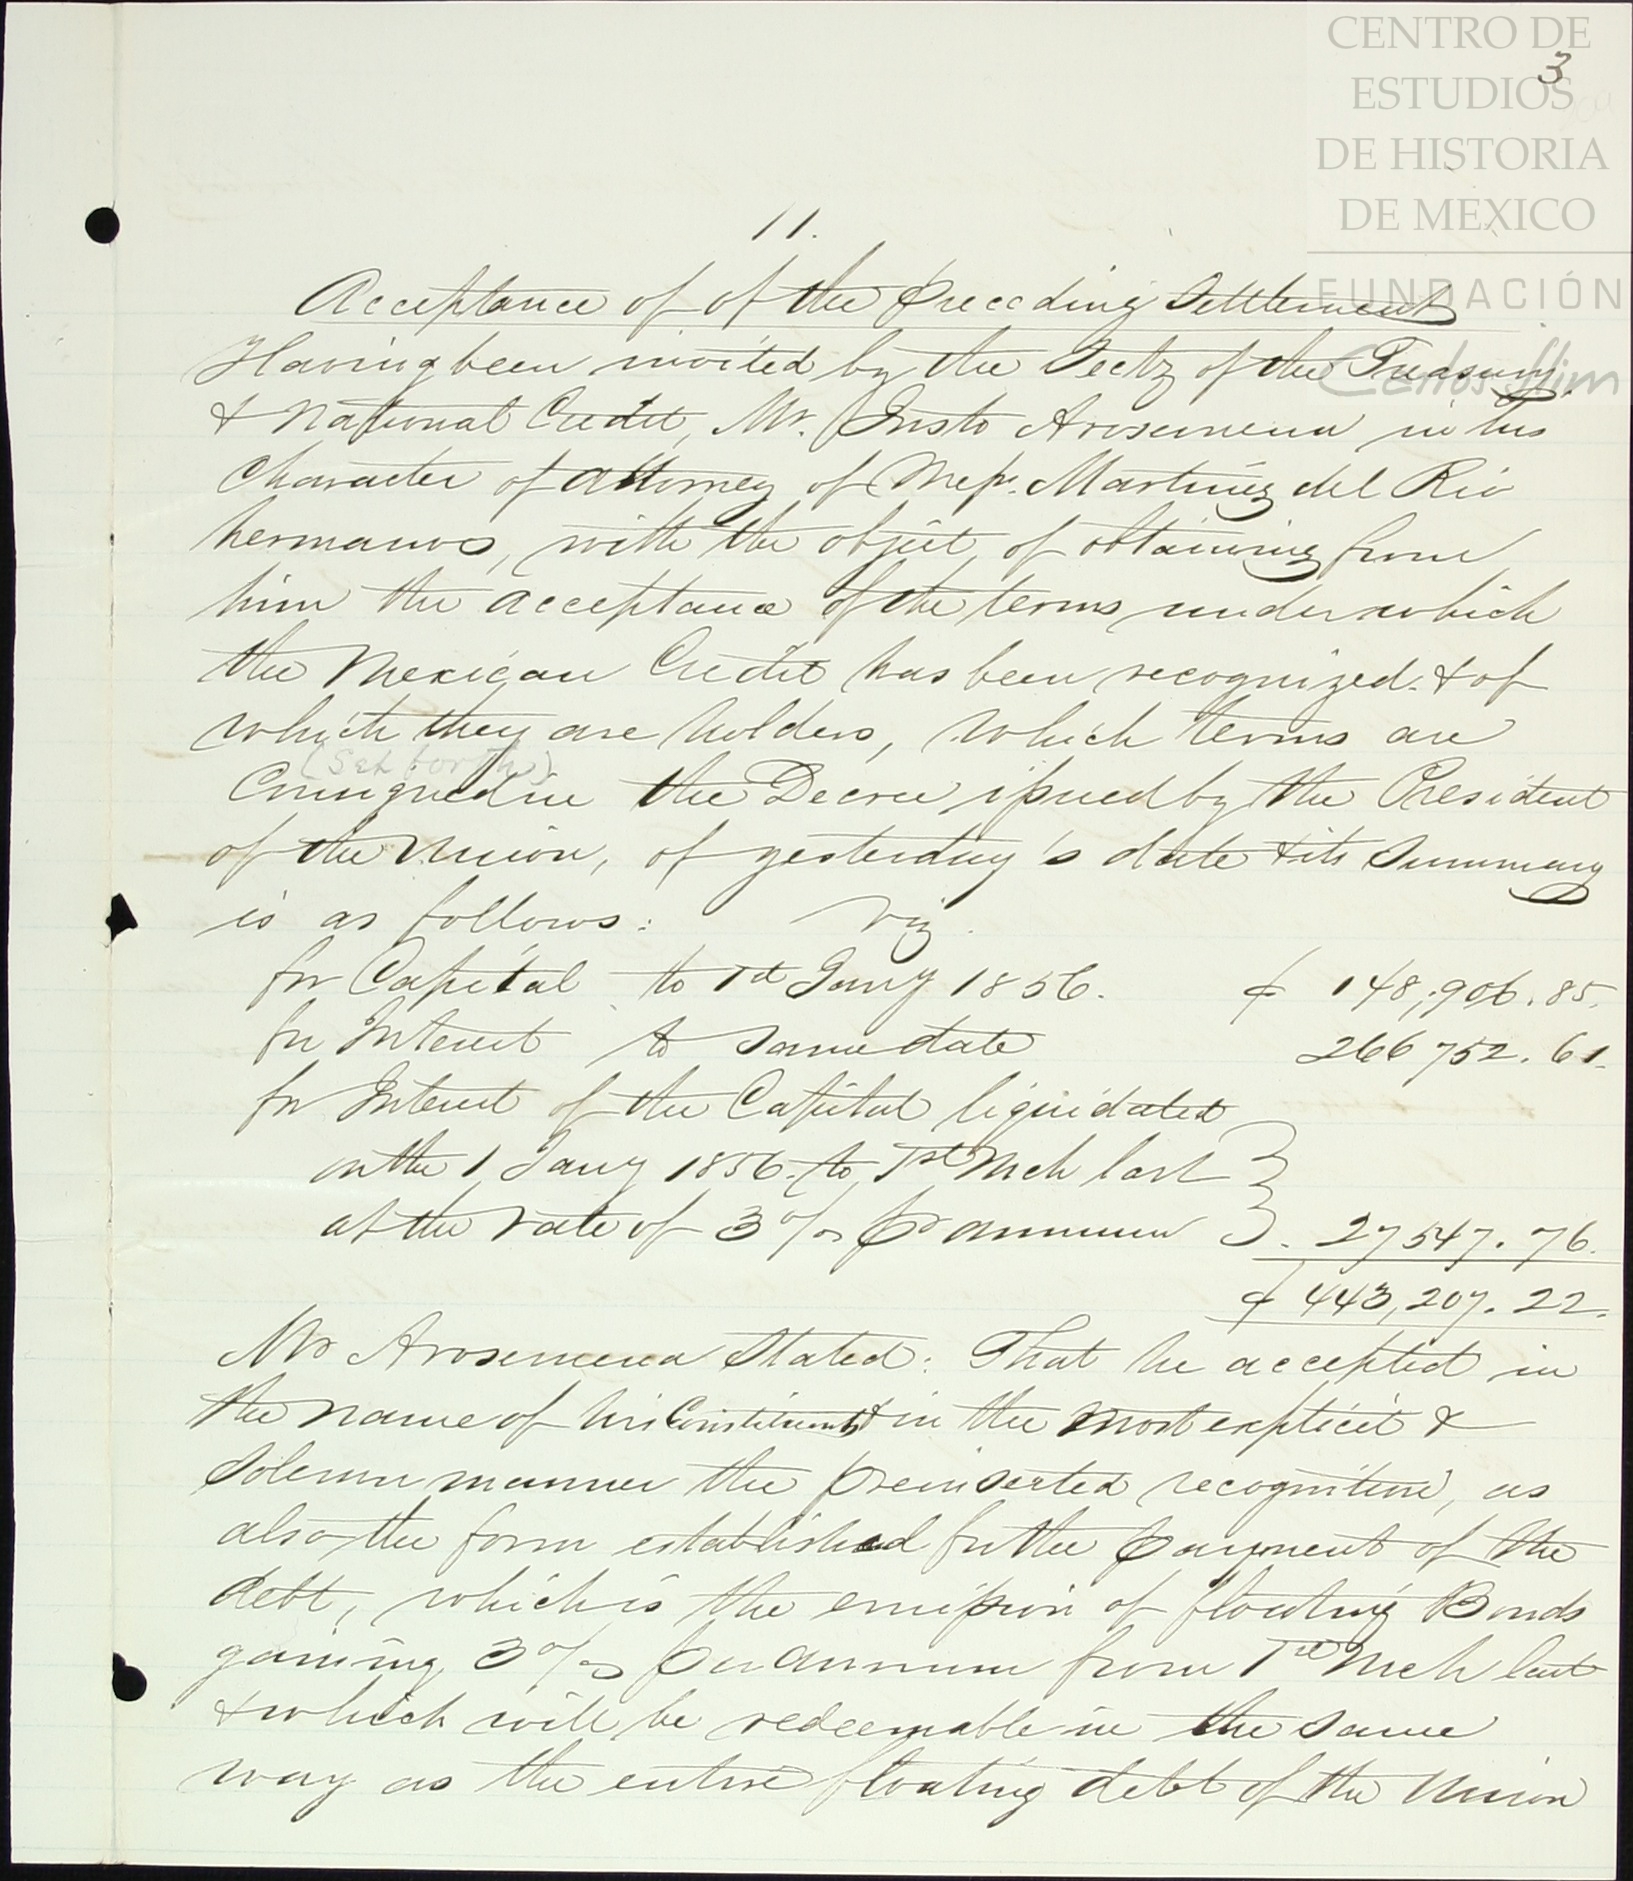 CENTRO DE
ESTUDIOS
DE HISTORIA
DE MEXICO
FUNDACIÓN
Carlos Slim
3
11.
Acceptance of of the preceding Settlement
Having been invited by the Secty of the Treasury
& National Credit, Mr. Justo Arosemena in his
Character of attorney of Messrs. Martinez del Rio
hermanos, with the object of obtaining from
him the acceptance of the terms under which
the Mexican Credit has been recognized & of
which they are holders, which terms are
(Set forth)
Consigned in the Decree issued by the President
of the Union, of yesterday's date & its Summary
is as follows: viz.
for Capital to 1st Jany 1856. $ 148,906.85.
for Interest to same date 266 752.61.
for Interest of the Capital liquidated
on the 1 Jany 1856. to 1st Mch last
at the rate of 3% pr annum . 27 547.76.
$ 443,207.22.
Mr Arosemena Stated: That he accepted in
the name of his Constituents & in the most explicit &
Solemn manner the preinserted recognition, as
also the form established for the payment of the
debt, which is the emission of floating Bonds
gaining 3% per annum from 1st Mch last
& which will be redeemable in the same
way as the entire floating debt of the Union